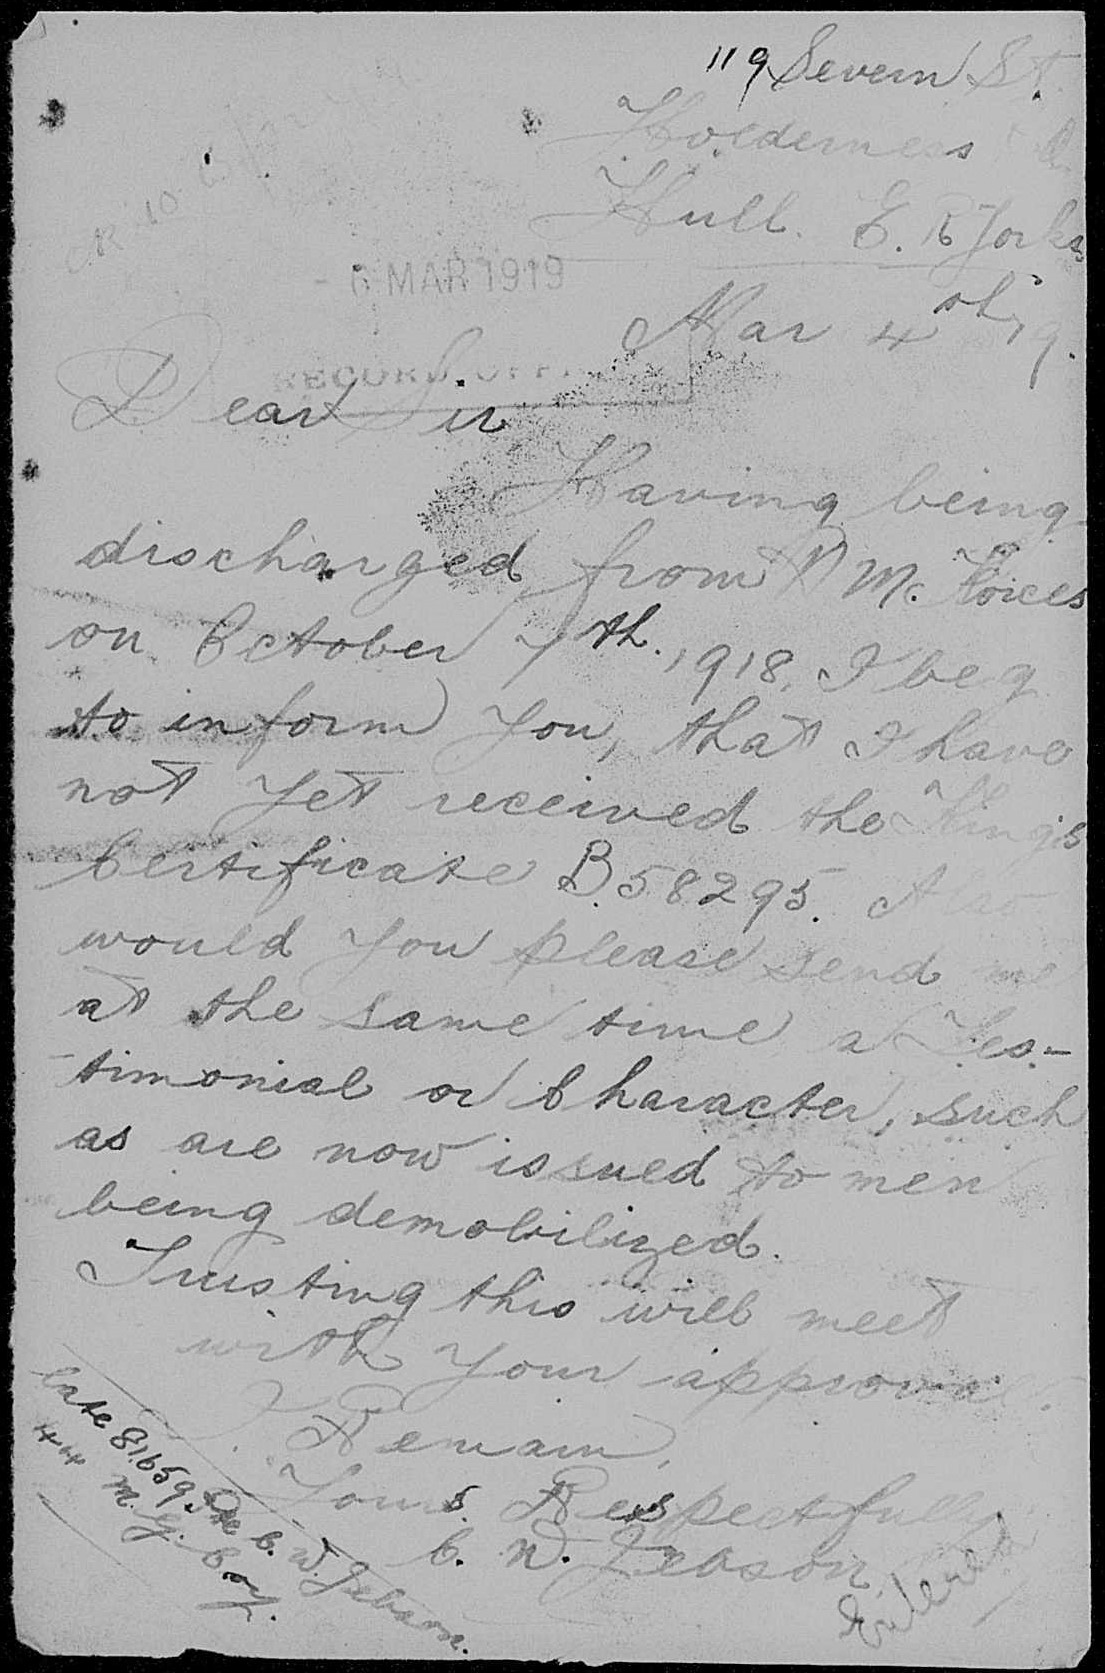 119 Severn St.
Holderness
Hull. E. R Yorks
- 6 MAR 1919
Mar 4th 19.
RECORD OFFI
Dear Sir,
Having being
discharged from H M. Forces
on October 7th. 1918, I beg
to inform you, that I have
not yet received the Kings
Certificate B.58295. Also
would you please send me
at the same time a Tes-
timonial or Character, such
as are now issued to men
being demobilized.
Trusting this will meet
with your approval.
I Remain,
Yours Respectfully
C. W. Jebson
late 81659 Pte C. W. Jebson.
44 M. G. Coy.